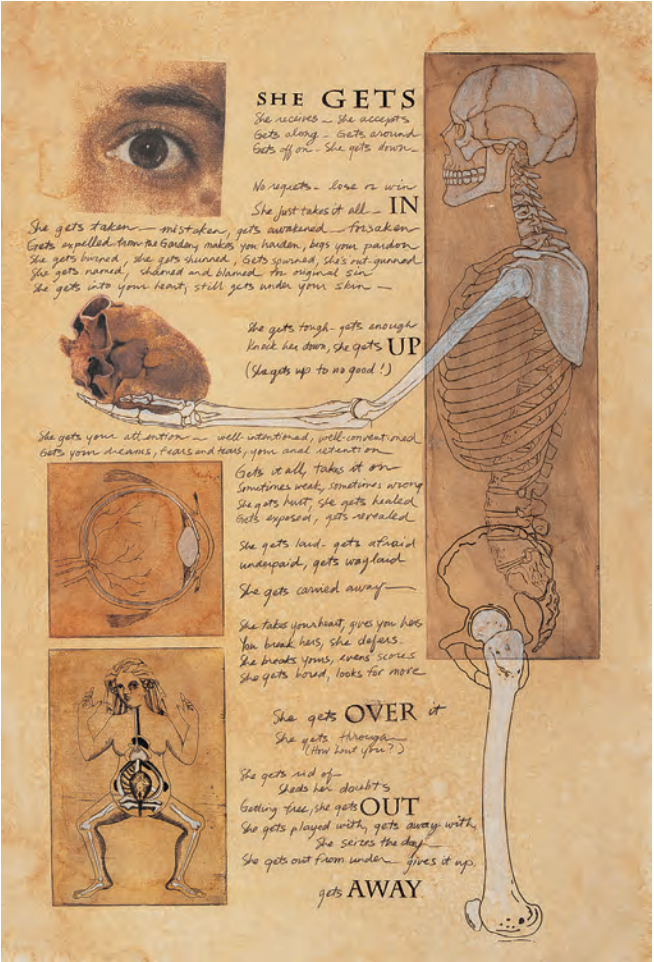 SHE GETS
She receives – She accepts
Gets along – Gets around
Gets off on – She gets down –
No regrets – lose or win
She just takes it all – IN
She gets taken – mistaken, gets awakened – forsaken
Gets expelled from the Garden, makes you harden, begs your pardon
She gets burned, she gets shunned, Gets spurned, she's out-gunned
She gets named, shamed and blamed for original sin
She gets into your heart, still gets under your skin –
She gets tough – gets enough
Knock her down, she gets UP
(She gets up to no good!)
She gets your attention – well-intentioned, well-conventioned
Gets your dreams, fears and tears, your anal retention
Gets it all, takes it on
Sometimes weak, sometimes wrong
She gets hurt, she gets healed
Gets exposed, gets revealed
She gets laid – gets afraid
underpaid, gets waylaid
She gets carried away –
She takes your heart, gives you hers
You break hers, she defers
She breaks yours, evens scores
She gets bored, looks for more
She gets OVER it
She gets through
(How 'bout you?)
She gets rid of –
Sheds her doubts
Getting free, she gets OUT
She gets played with, gets away with,
She seizes the day –
She gets out from under – gives it up,
gets AWAY